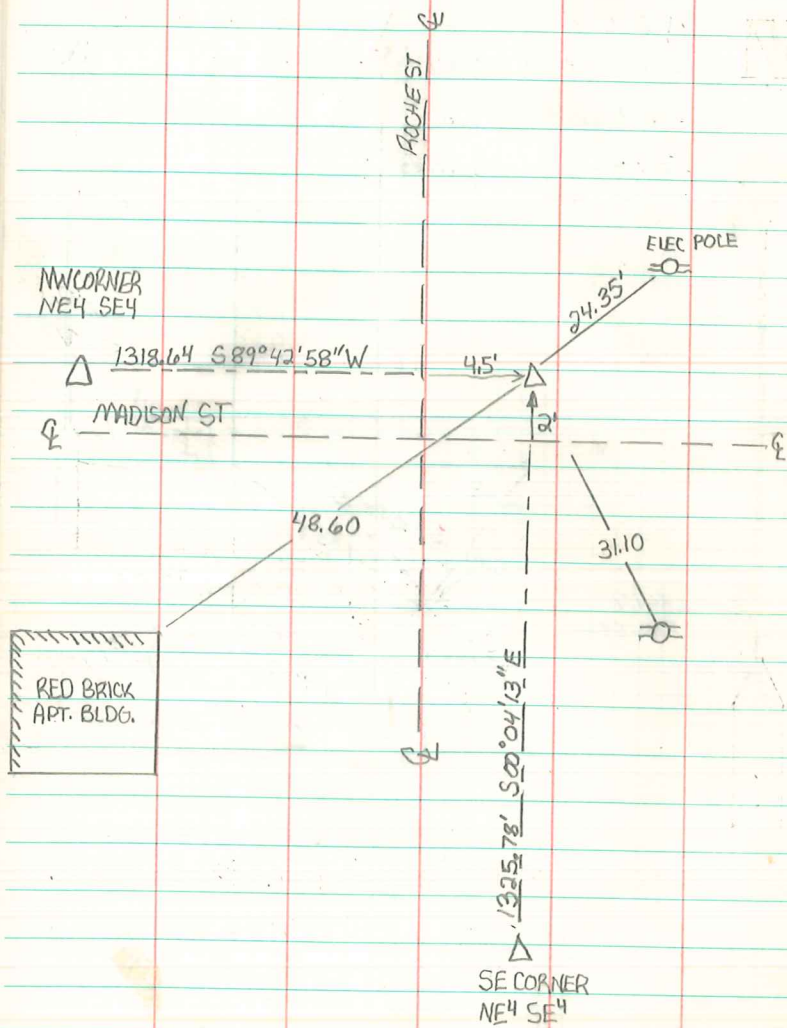 ℄
ROCHE ST
ELEC POLE
24.35'
NW CORNER
NE4 SE4
1318.64 S89°42'58"W
4.5'
MADISON ST
℄
2'
℄
48.60
31.10
RED BRICK
APT. BLDG.
℄
1325.78' S00°04'13"E
SE CORNER
NE4 SE4